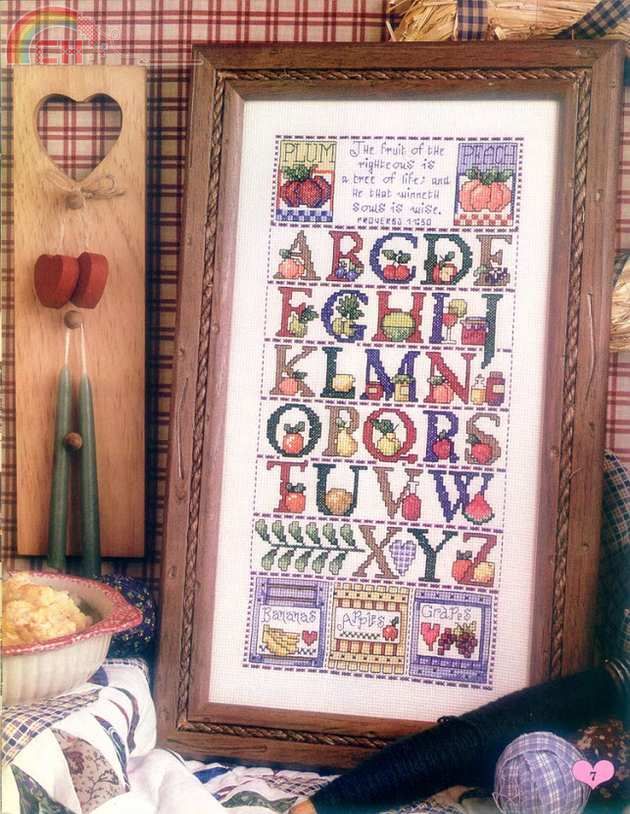 PLUM
The fruit of the
righteous is
a tree of life; and
he that winneth
souls is wise.
PROVERBS 11:30
PEACH
ABCDE
FGHIJ
KLMN
OPQRS
TUVW
XYZ
Bananas
Apples
Grapes
7